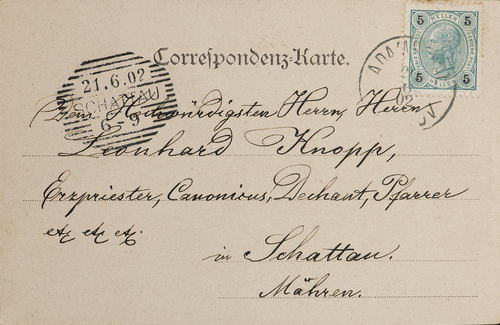 Correspondenz-Karte.
5 HELLER 5
5 5
21.6.02
SCHATTAU
6 9
Hochwürdigsten Herrn, Herrn
Leonhard Knopp,
Erzpriester, Canonicus, Dechant, Pfarrer
etc etc etc.
in Schattau.
Mähren.